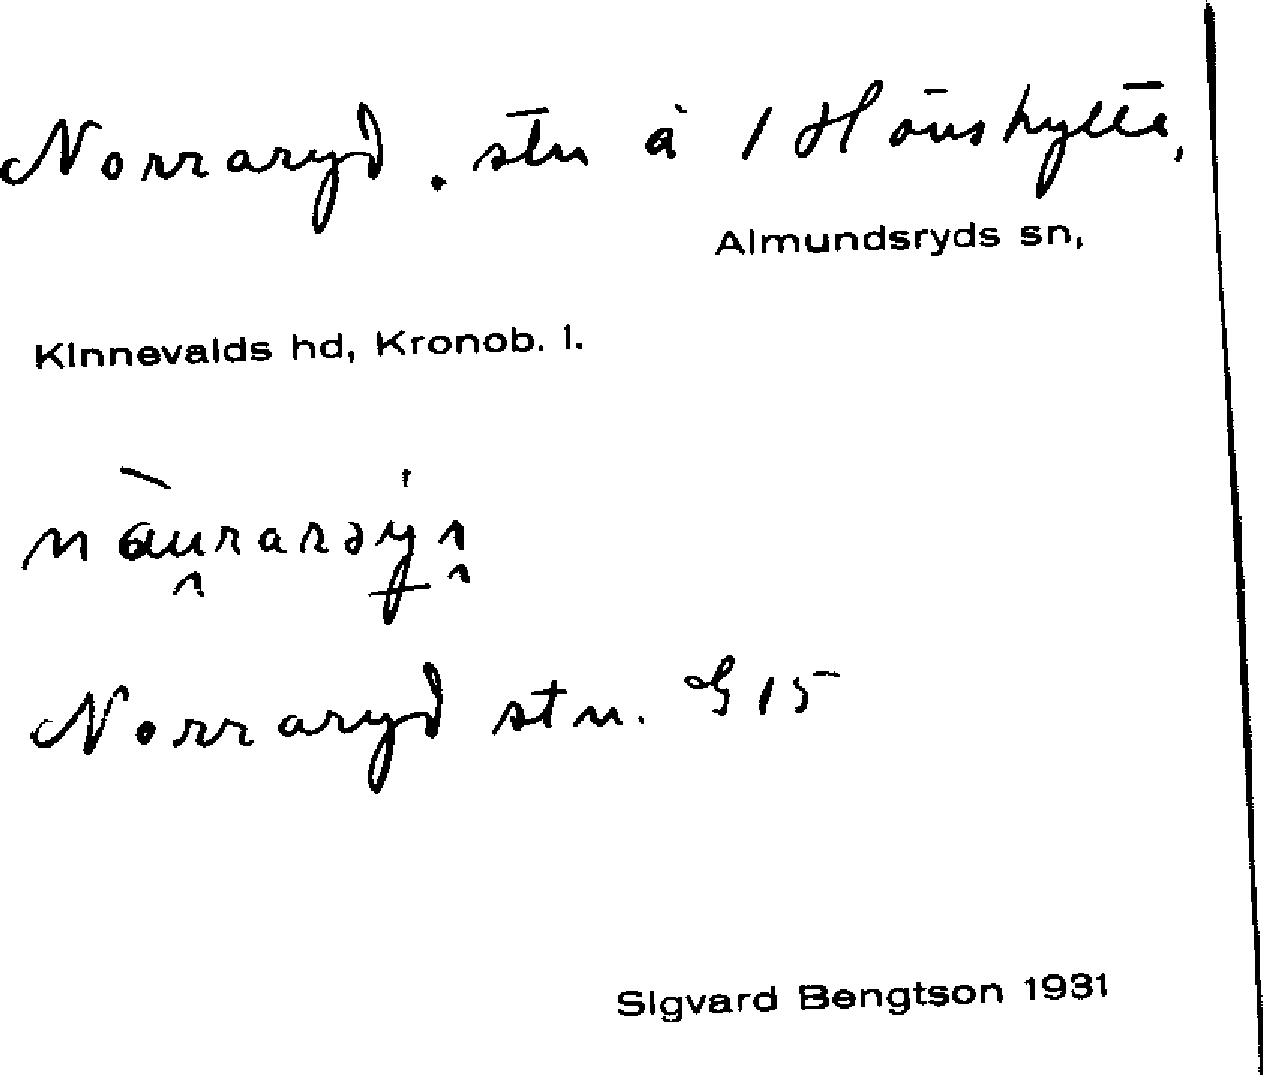 Norraryd. stn å 1 Hönshylte,
Almundsryds sn,
Kinnevalds hd, Kronob. l.
Norraryd stn. G 15
Sigvard Bengtson 1931